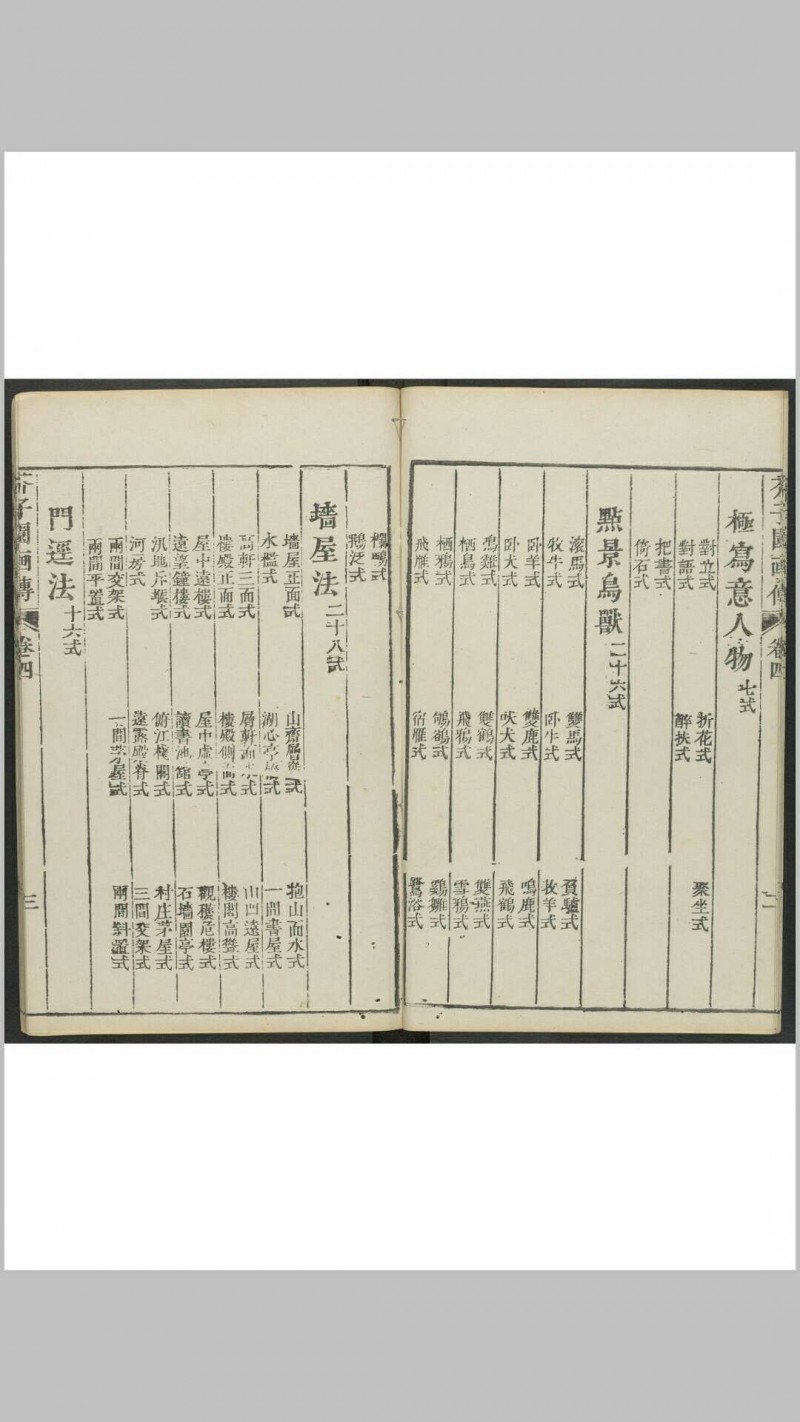 芥子園畫傳 卷四 二
極寫意人物 七式
對立式 折花式 聚坐式
對語式 醉扶式
把書式
倚石式
點景鳥獸 二十六式
滾馬式 雙馬式 負驢式
牧牛式 卧牛式 牧羊式
卧羊式 雙鹿式 鳴鹿式
卧犬式 吠犬式 飛鶴式
鴻雞式 雙鶴式 雙燕式
栖鳥式 飛鴉式 雪鴉式
栖鴉式 鵓鴿式 鷄雛式
飛雁式 宿雁式 鴛浴式
鵝泛式
墻屋法 二十八式
墻屋正面式 山齋 抱山面水式
水檻式 湖心亭 一間書屋式
高軒三面式 層軒面 山凹遠屋式
樓殿正面式 樓殿側面式 樓閣高聳式
屋中遠樓式 屋中虛亭式 觀穫危樓式
遠望鐘樓式 讀書池館式 石墻園亭式
汎地斥堠式 俯江棧閣式 村庄茅屋式
河房式 遠露殿脊式 三間叉架式
兩間叉架式 一間茅屋式 兩間對置式
兩間平置式
門逕法 十六式
芥子園画傳 卷四 三